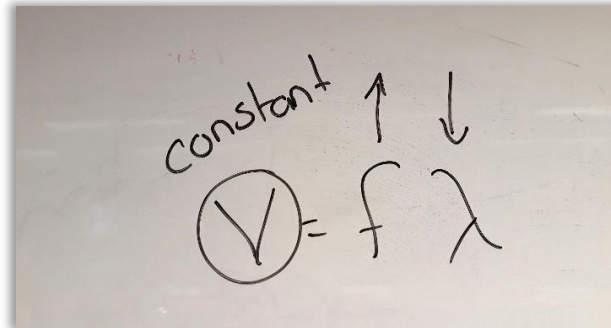 constant ↑ ↓
V = f λ